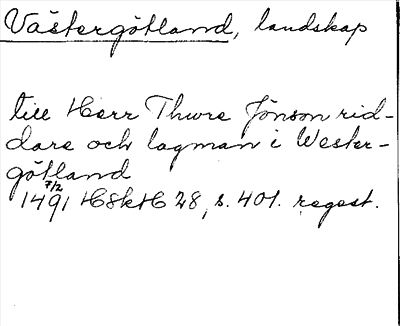 Västergötland, landskap
till Herr Thure Jönson rid-
dare och lagman i Wester-
götland
7/2
1491 HSkH 28, s. 401. regest.